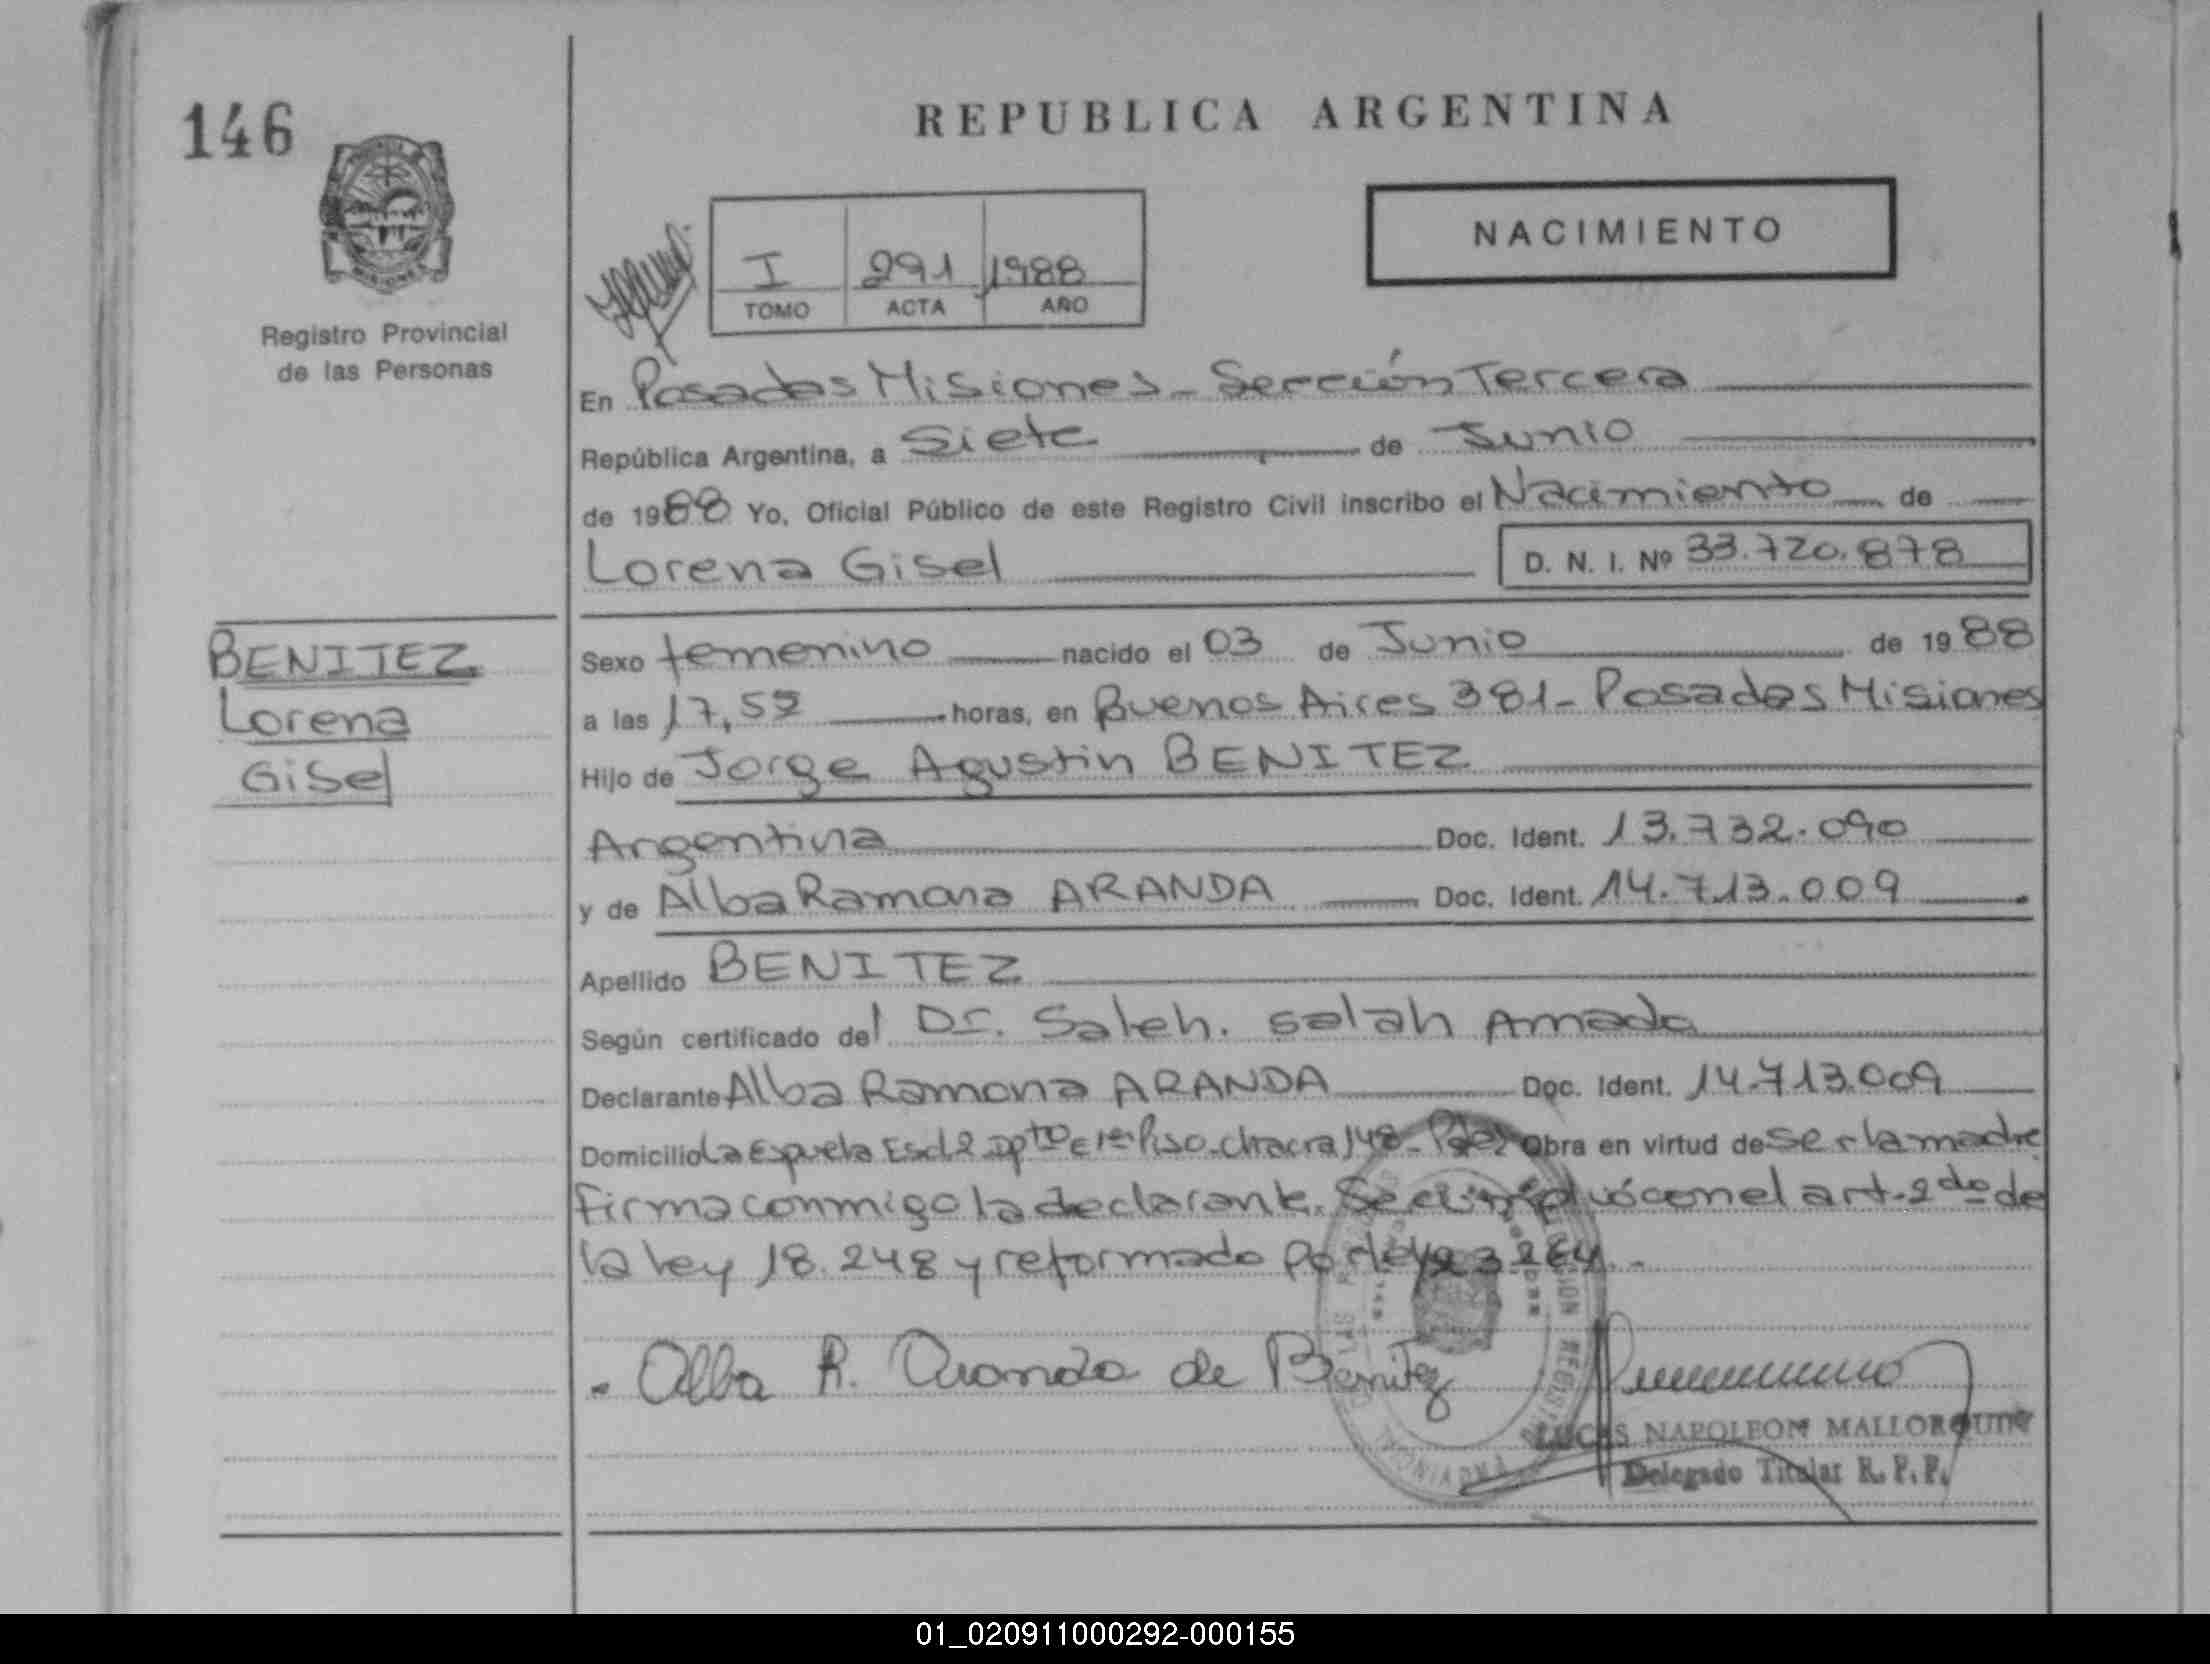 146
REPUBLICA ARGENTINA
NACIMIENTO
I 291 1988
TOMO ACTA AÑO
Registro Provincial
de las Personas
En Posadas Misiones - Sección Tercera
República Argentina, a Siete de Junio
de 1988 Yo, Oficial Público de este Registro Civil inscribo el Nacimiento de
Lorena Gisel D. N. I. Nº 33.720.878
BENITEZ
Lorena
Gisel
Sexo femenino nacido el 03 de Junio de 1988
a las 17,52 horas, en Buenos Aires 381 - Posadas Misiones
Hijo de Jorge Agustin BENITEZ
Argentina Doc. Ident. 13.732.090
y de Alba Ramona ARANDA Doc. Ident. 14.713.009
Apellido BENITEZ
Según certificado del Dr. Saleh. Salah Amado
Declarante Alba Ramona ARANDA Doc. Ident. 14.713.009
Domicilio La Espuela Escl 2 Dpto E 1er Piso - Chacra 148 - Obra en virtud de ser la madre
firma conmigo la declarante. Se cumplió con el art. 2do de
la ley 18.248 y reformado por ley 23264.-
Alba R. Aranda de Benitez
LUCAS NAPOLEON MALLORQUIN
Delegado Titular R. P. P.
01_020911000292-000155